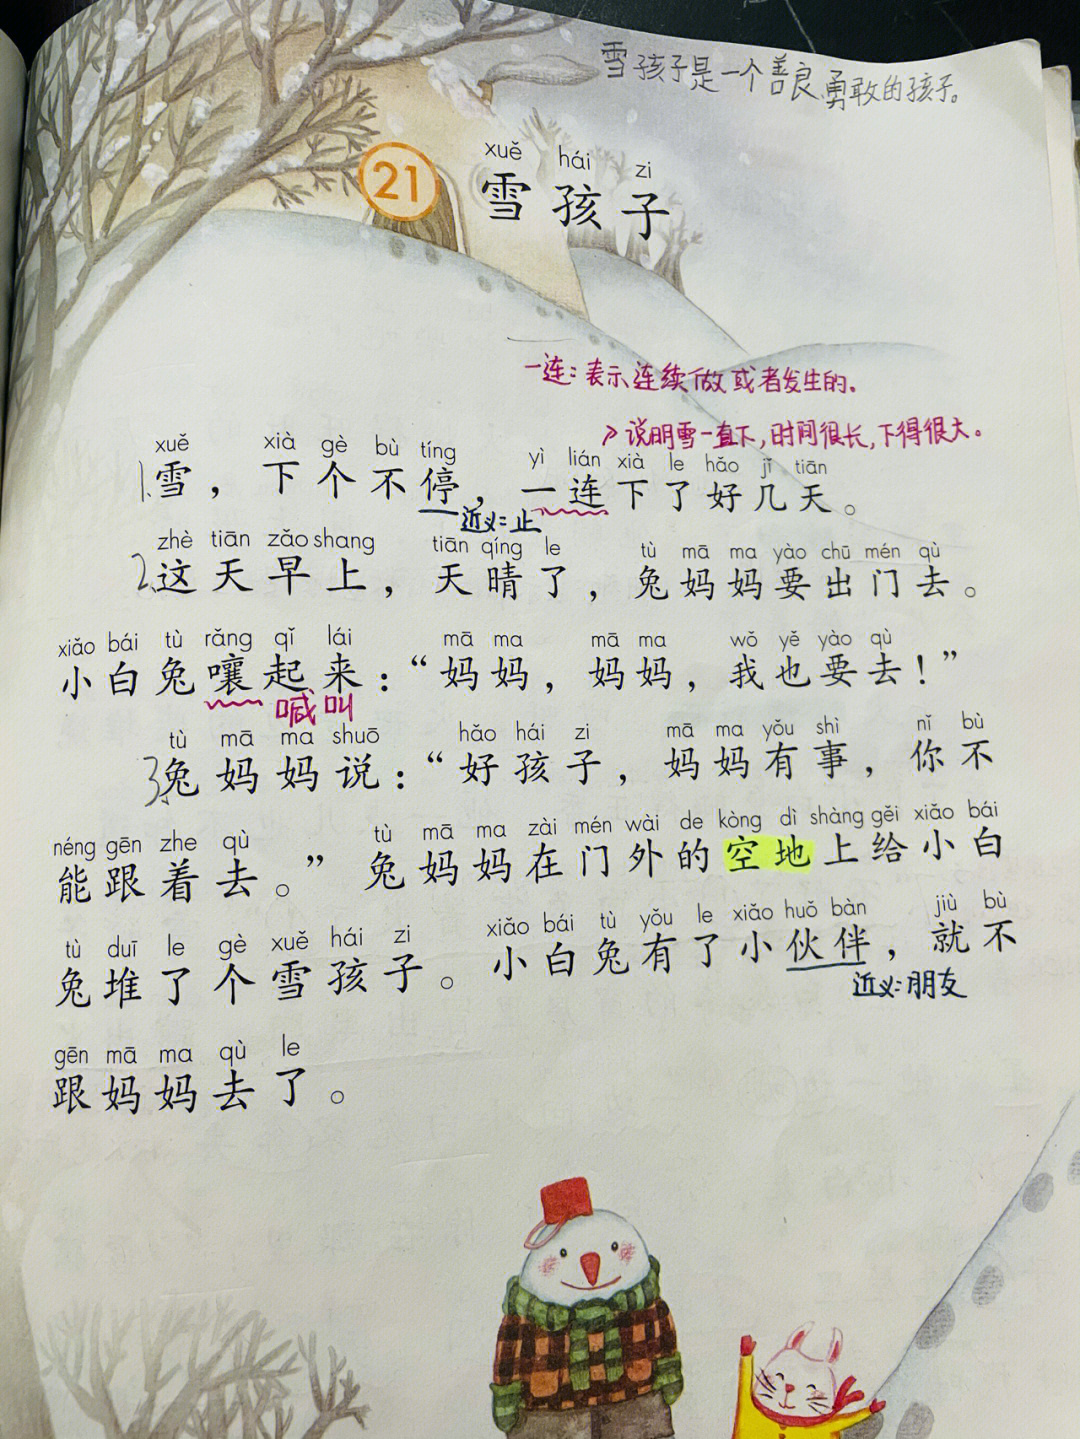 雪孩子是一个善良勇敢的孩子。
xuě hái zi
21 雪孩子
一连：表示连续做或者发生的。
说明雪一直下，时间很长，下得很大。
xuě xià gè bù tíng yì lián xià le hǎo jǐ tiān
1.雪，下个不停，一连下了好几天。
近义：止
zhè tiān zǎo shang tiān qíng le tù mā ma yào chū mén qù
2.这天早上，天晴了，兔妈妈要出门去。
xiǎo bái tù rǎng qǐ lái mā ma mā ma wǒ yě yào qù
小白兔嚷起来：“妈妈，妈妈，我也要去！”
喊叫
tù mā ma shuō hǎo hái zi mā ma yǒu shì nǐ bù
3.兔妈妈说：“好孩子，妈妈有事，你不
néng gēn zhe qù tù mā ma zài mén wài de kòng dì shàng gěi xiǎo bái
能跟着去。”兔妈妈在门外的空地上给小白
tù duī le gè xuě hái zi xiǎo bái tù yǒu le xiǎo huǒ bàn jiù bù
兔堆了个雪孩子。小白兔有了小伙伴，就不
近义：朋友
gēn mā ma qù le
跟妈妈去了。